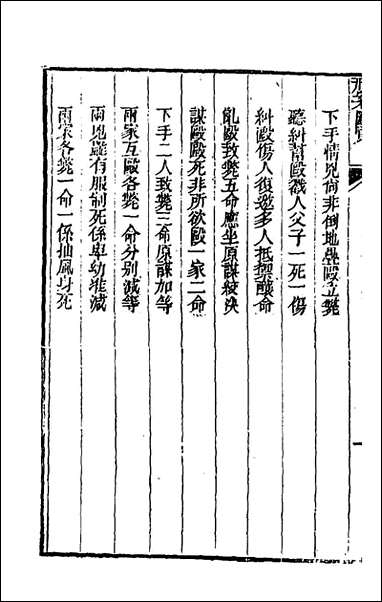 下手情兇尚非倒地疊毆立斃
聽糾幫毆戳人父子一死一傷
糾毆傷人復邀多人抵禦釀命
亂毆致斃五命應坐原謀絞決
謀毆毆死非所欲毆一家二命
下手二人致斃三命原謀加等
兩家互毆各斃一命分別減等
兩兇雖有服制死係卑幼准減
兩家各斃一命一係抽風身死